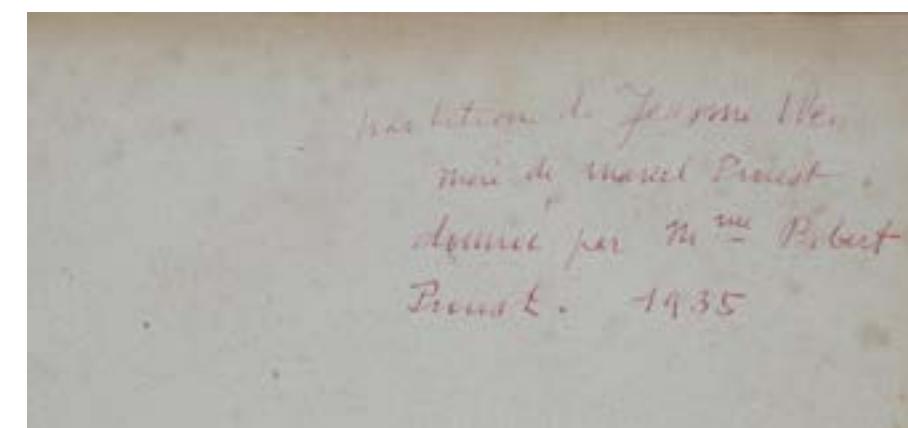 partition de Jeanne Weil
mère de Marcel Proust.
donnée par Mme Robert
Proust. 1935